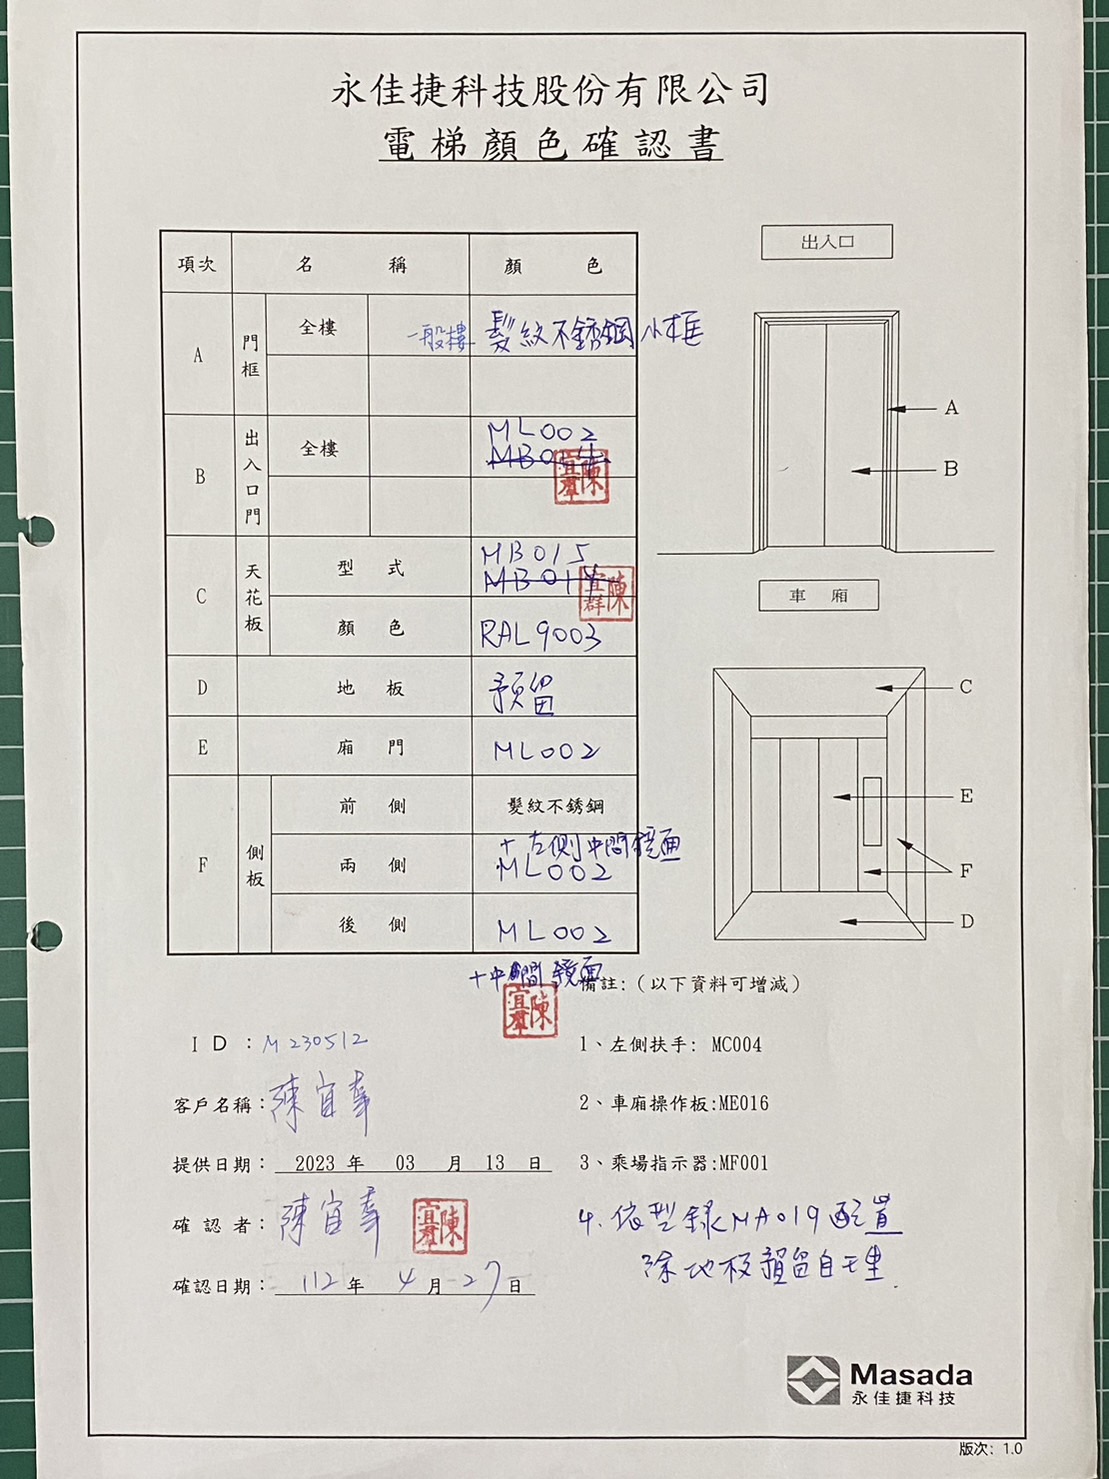 永佳捷科技股份有限公司
電梯顏色確認書
項次 名 稱 顏 色
A 門框 全樓 一般樓 髮紋不銹鋼小框
B 出入口門 全樓 ML002
MB014
陳宜群
C 天花板 型 式 MB015
MB014
陳宜群
顏 色 RAL9003
D 地 板 預留
E 廂 門 ML002
F 側板 前 側 髮紋不銹鋼
兩 側 +左側中間鏡面
ML002
後 側 ML002
+中間鏡面
陳宜群
出入口
A
B
車 廂
C
E
F
D
備註:(以下資料可增減)
ID :M230512
1、左側扶手: MC004
客戶名稱:陳宜群
2、車廂操作板:ME016
提供日期: 2023 年 03 月 13 日
3、乘場指示器:MF001
確 認 者:陳宜群 陳宜群
4.依型錄MA019配置
除地板預留自理.
確認日期: 112 年 4 月 27 日
Masada
永佳捷科技
版次: 1.0